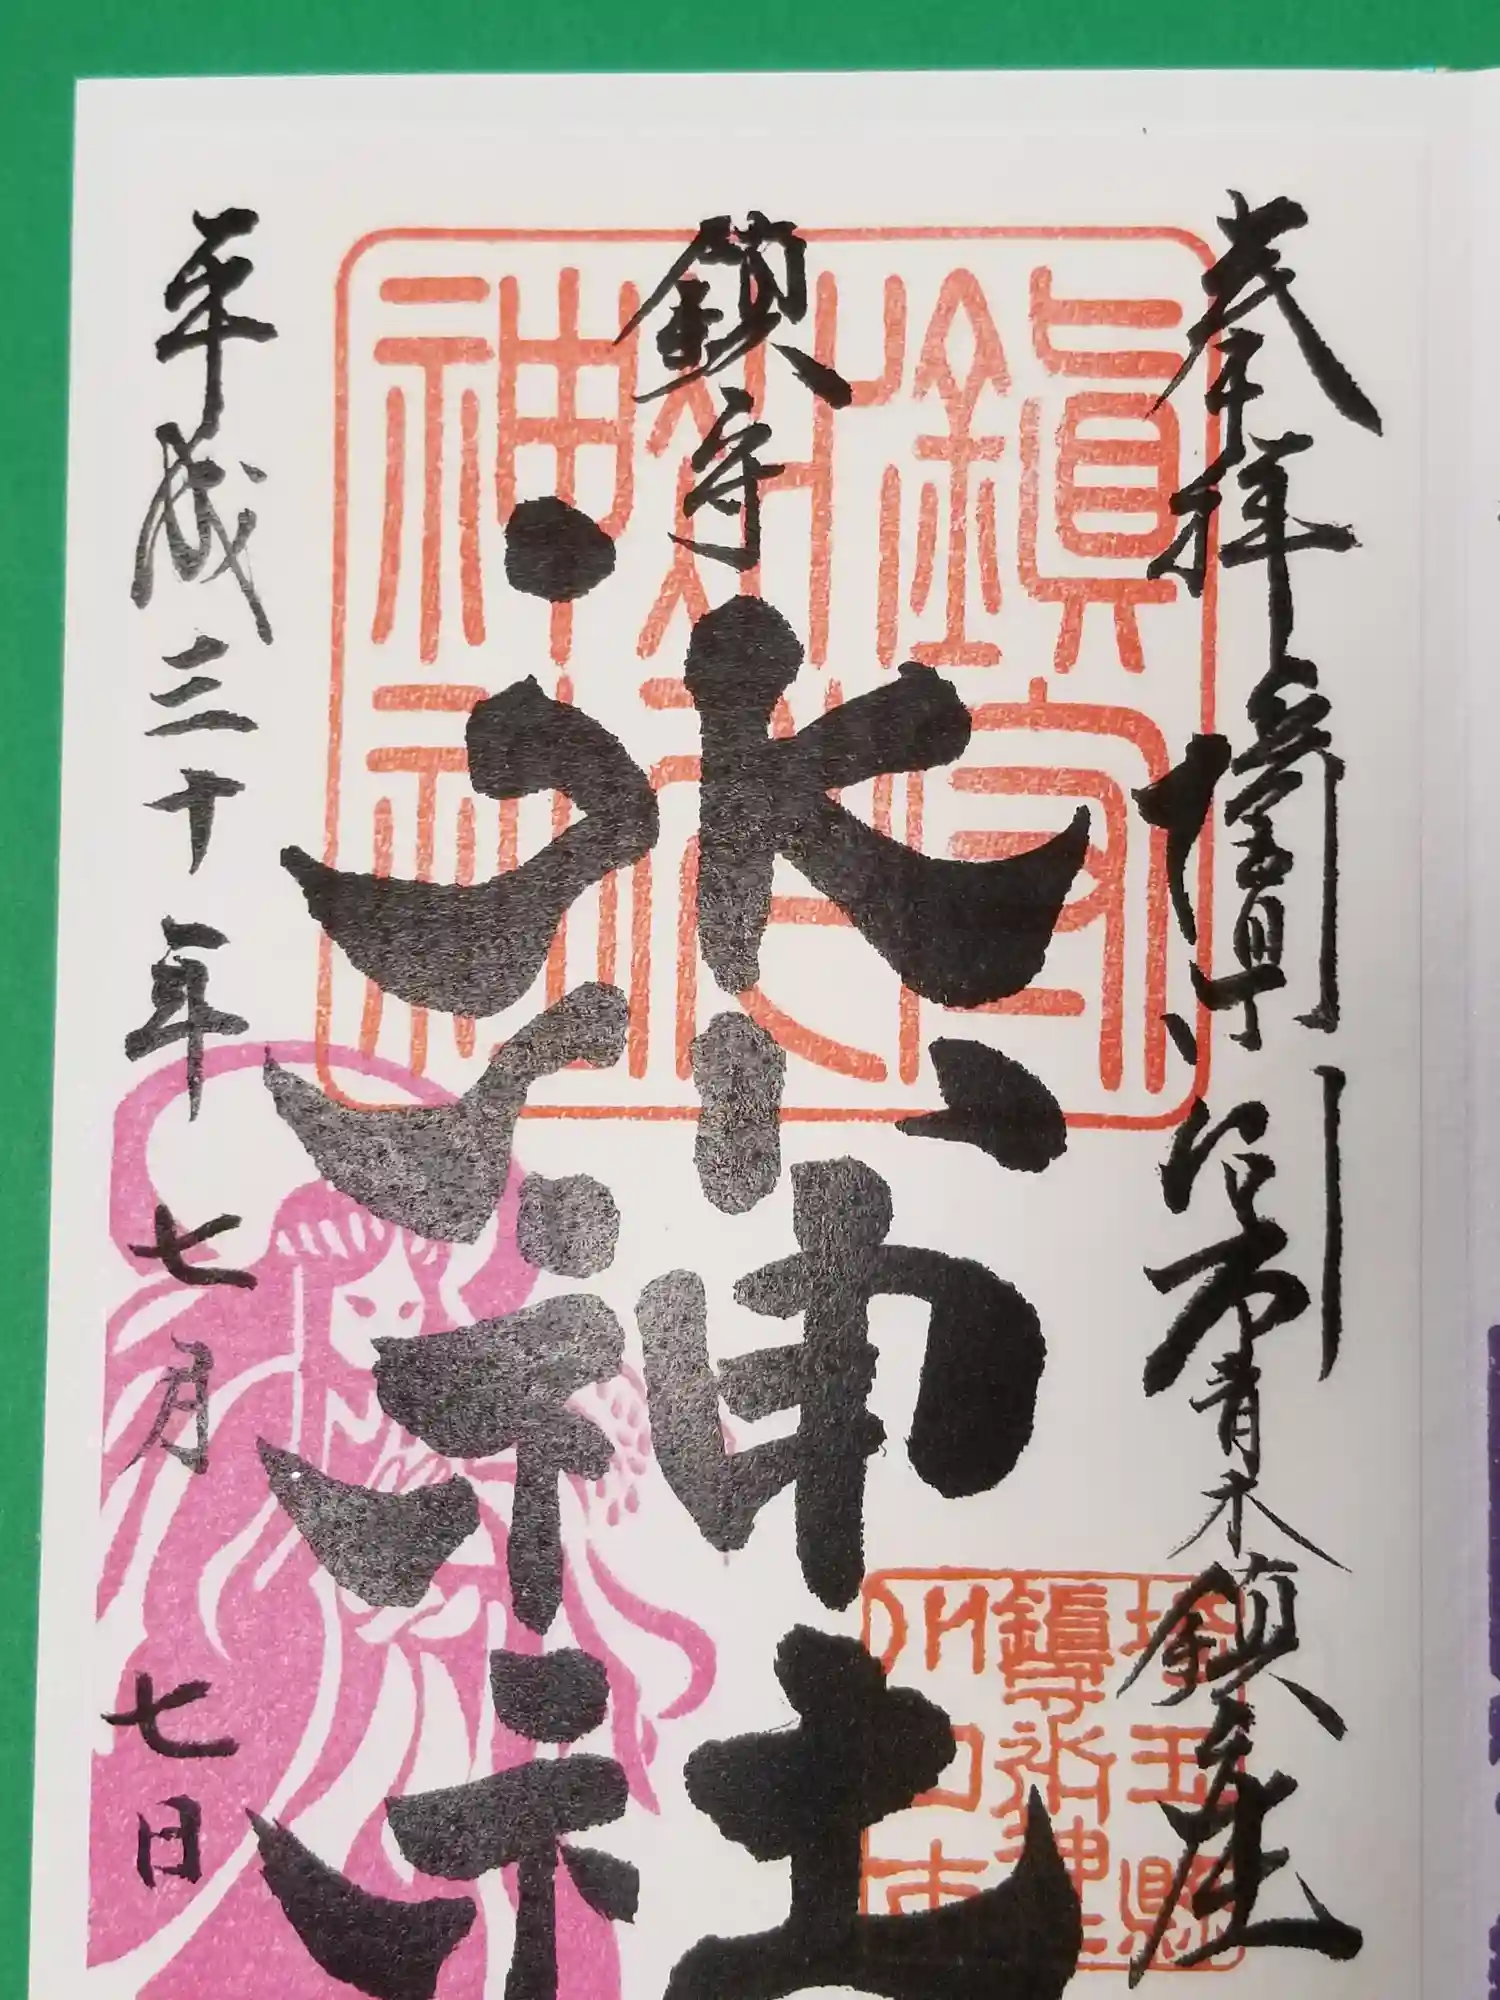 奉拝 埼玉県川口市青木鎮座
鎮守
氷川神社
平成三十年七月七日
鎮守
氷川
神社
埼玉縣
鎮守氷川神社
川口市